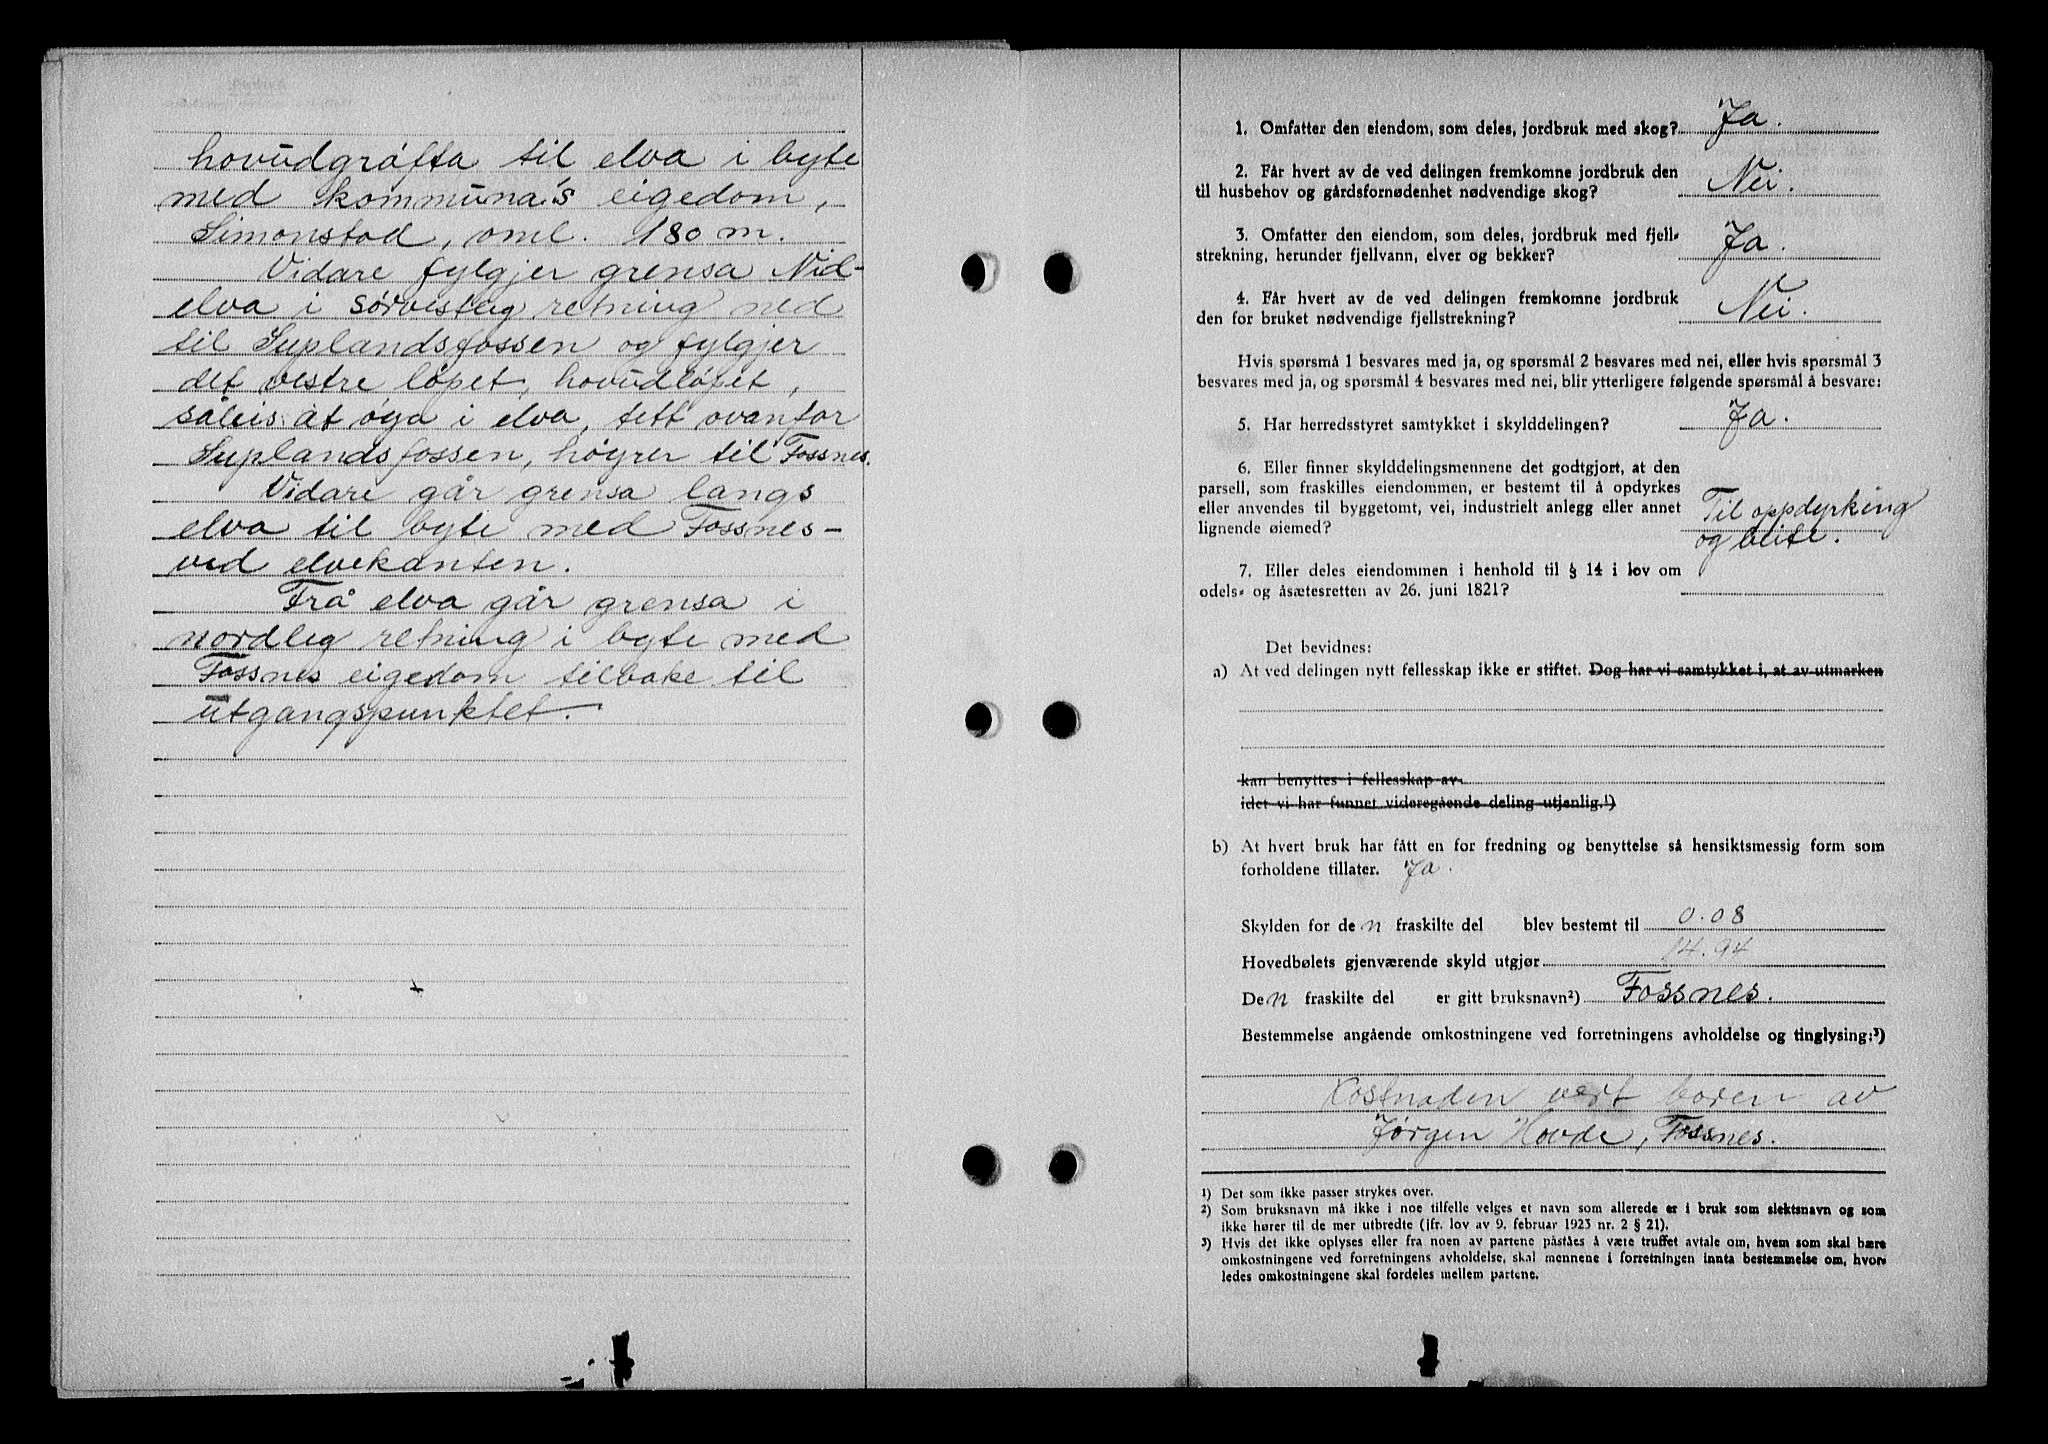 hovudgrøfta til elva i byte
med kommuna's eigedom,
Simonstad, oml. 180 m.
Vidare fylgjer grensa Nid-
elva i sørvestleg retning ned
til Suplandsfossen og fylgjer
det vestre løpet, hovudløpet,
såleis at øya i elva, tett ovanfor
Suplandsfossen, høyrer til Fossnes.
Vidare går grensa langs
elva til byte med Fossnes-
ved elvekanten.
Frå elva går grensa i
nordleg retning i byte med
Fossnes eigedom tilbake til
utgangspunktet.
1. Omfatter den eiendom, som deles, jordbruk med skog? Ja.
2. Får hvert av de ved delingen fremkomne jordbruk den
til husbehov og gårdsfornødenhet nødvendige skog? Nei.
3. Omfatter den eiendom, som deles, jordbruk med fjell-
strekning, herunder fjellvann, elver og bekker? Ja.
4. Får hvert av de ved delingen fremkomne jordbruk
den for bruket nødvendige fjellstrekning? Nei.
Hvis spørsmå 1 besvares med ja, og spørsmål 2 besvares med nei, eller hvis spørsmål 3
besvares med ja, og spørsmål 4 besvares med nei, blir ytterligere følgende spørsmål å besvare:
5. Har herredsstyret samtykket i skylddelingen? Ja.
6. Eller finner skylddelingsmennene det godtgjort, at den
parsell, som fraskilles eiendommen, er bestemt til å opdyrkes
eller anvendes til byggetomt, vei, industrielt anlegg eller annet
lignende øiemed? Til oppdyrking
og beite.
7. Eller deles eiendommen i henhold til § 14 i lov om
odels- og åsætesretten av 26. juni 1821?
Det bevidnes:
a) At ved delingen nytt fellesskap ikke er stiftet. Dog har vi samtykket i, at av utmarken
kan benyttes i fellesskap av
idet vi har funnet videregående deling utjenlig.¹)
b) At hvert bruk har fått en for fredning og benyttelse så hensiktsmessig form som
forholdene tillater. Ja.
Skylden for den fraskilte del blev bestemt til 0.08
Hovedbølets gjenværende skyld utgjør 14.94
Den fraskilte del er gitt bruksnavn²) Fossnes.
Bestemmelse angående omkostningene ved forretningens avholdelse og tinglysing:³)
Kostnaden vert boren av
Jørgen Hovde, Fossnes.
¹) Det som ikke passer strykes over.
²) Som bruksnavn må ikke i noe tilfelle velges et navn som allerede er i bruk som slektsnavn og som
ikke hører til de mer utbredte (jfr. lov av 9. februar 1923 nr. 2 § 21).
³) Hvis det ikke oplyses eller fra noen av partene påståes å være truffet avtale om, hvem som skal bære
omkostningene ved forretningens avholdelse, skal mennene i forretningen innta bestemmelse om, hvor-
ledes omkostningene skal fordeles mellem partene.